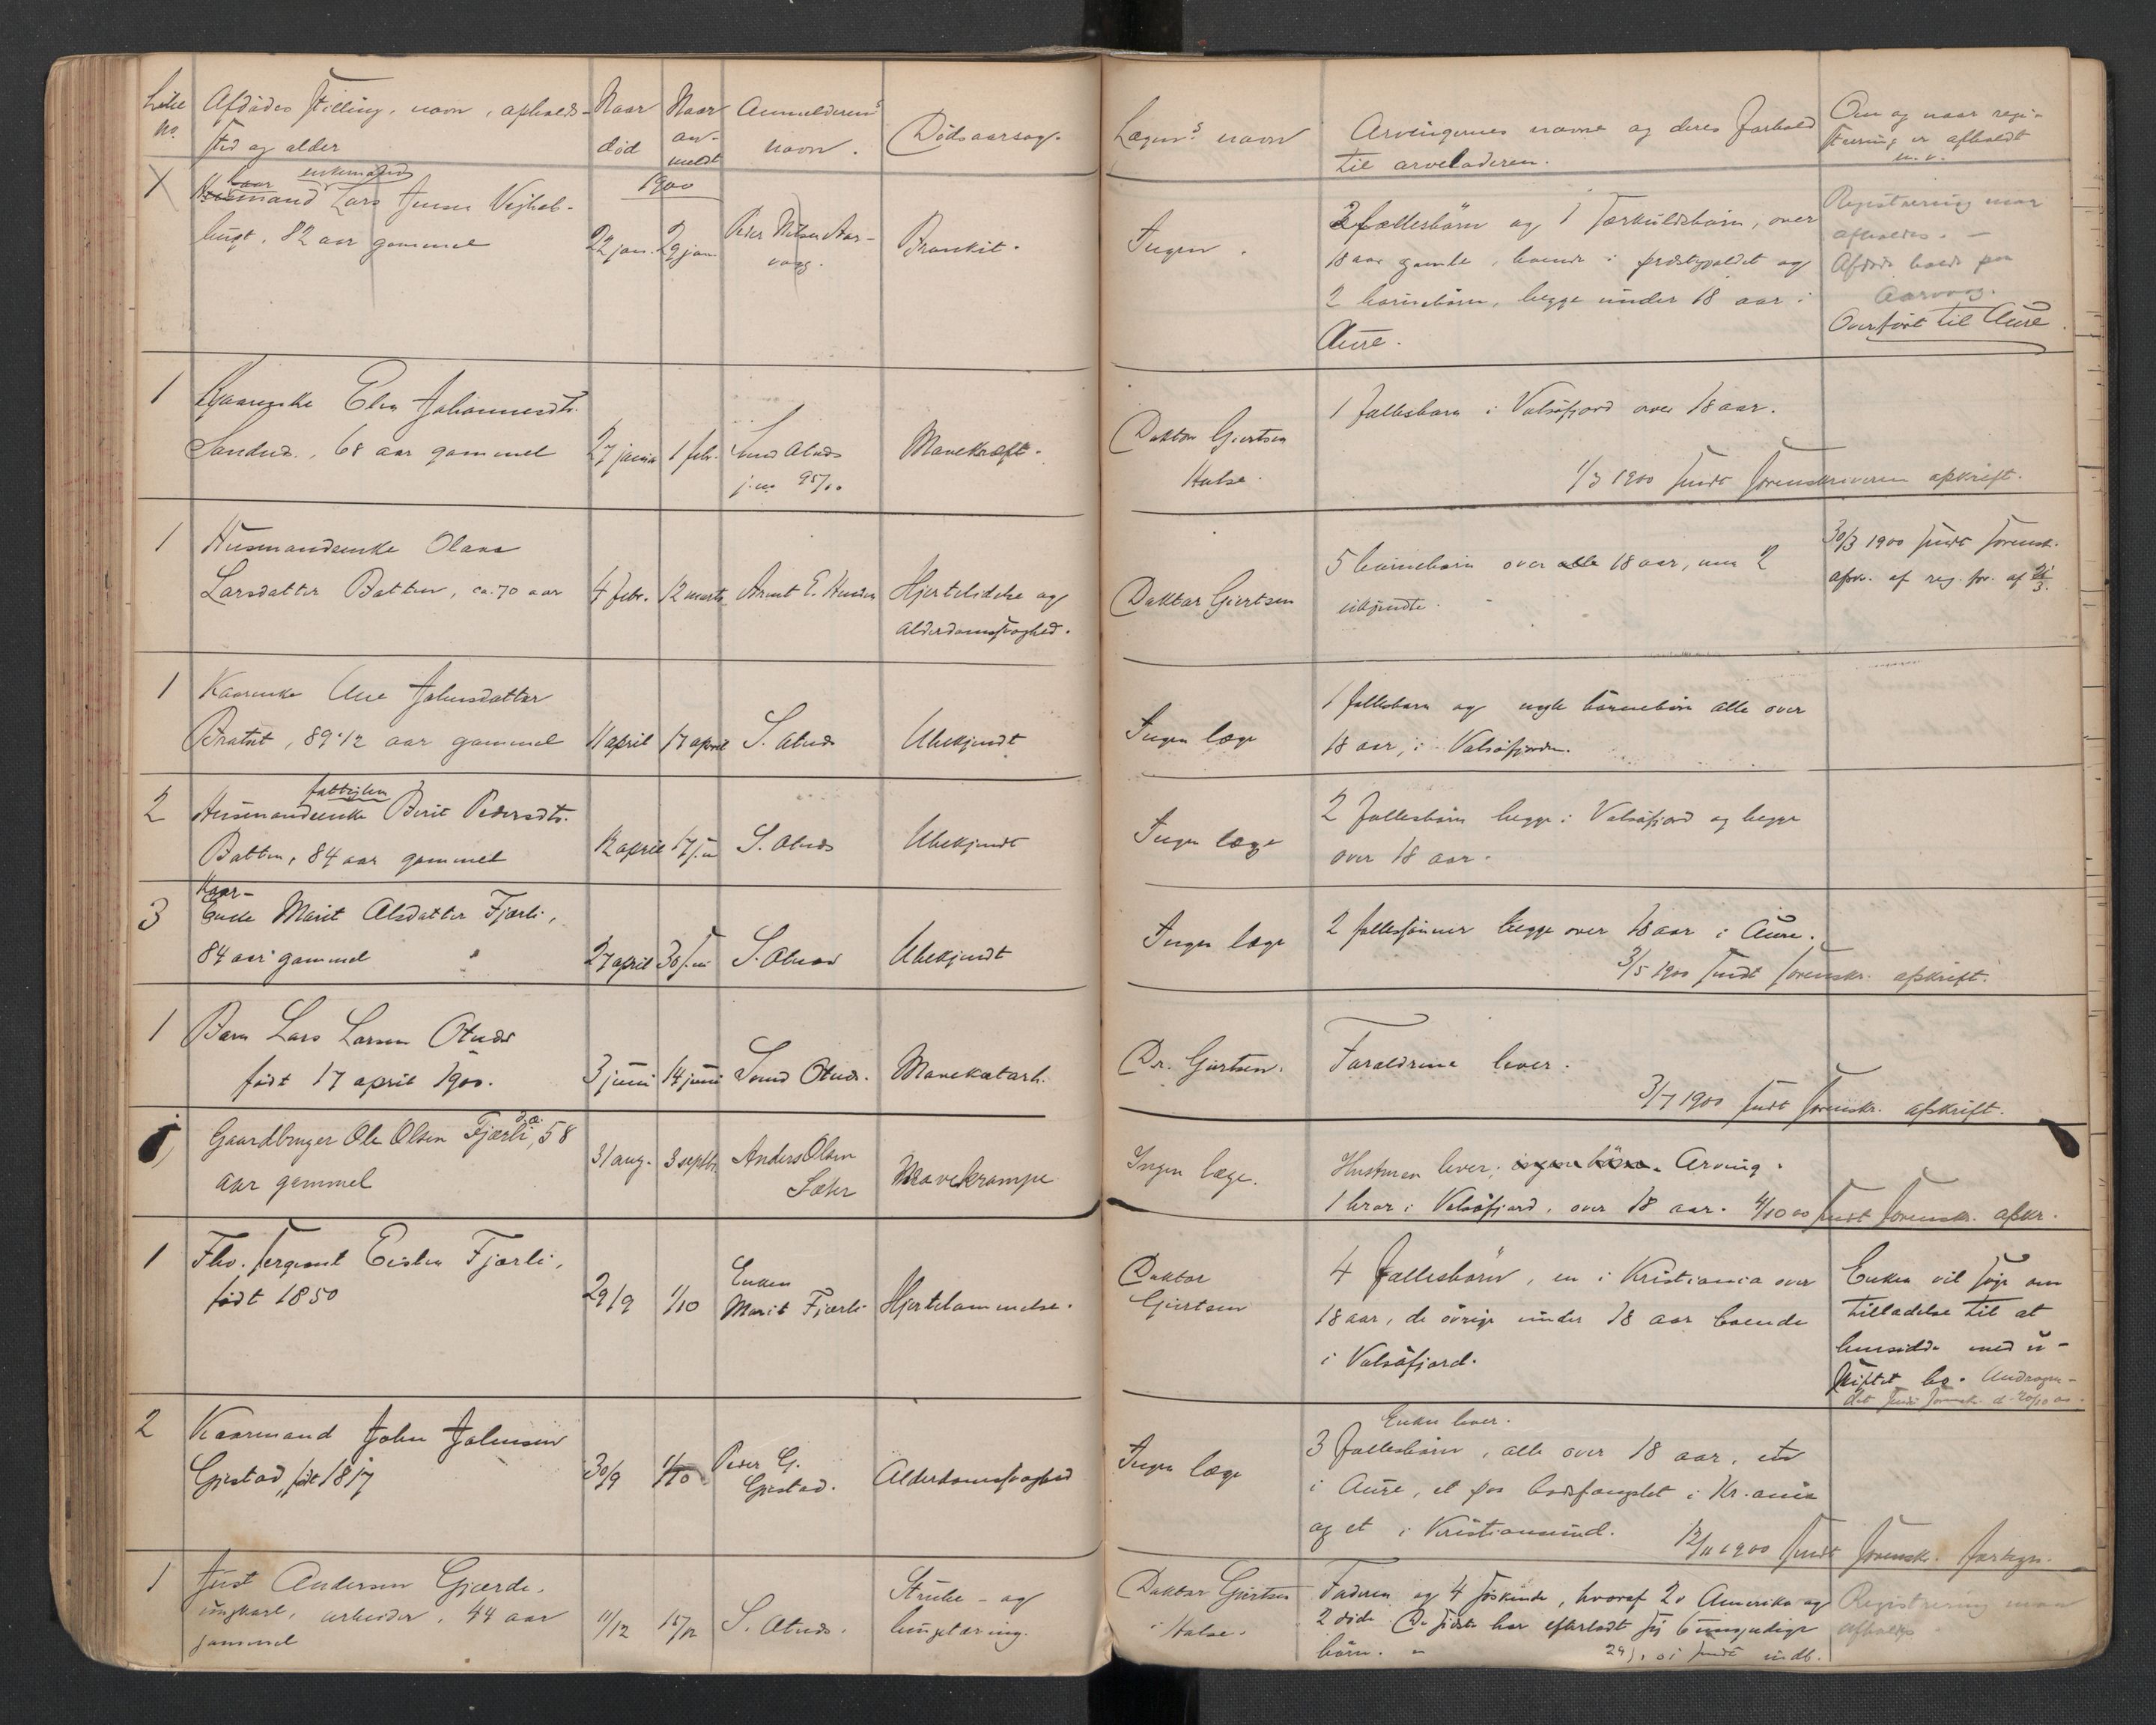 Løbe
No.
Afdødes stilling, navn, opholds-
sted og alder
Naar
død
Naar
an-
meldt
Anmelderens
navn.
Dødsaarsag.
Lægens navn
Arvingernes navne og deres forhold
til arveladeren.
Om og naar regi-
strering er afholdt
m.v.
1900
1
kaar enkemand
Husmand Lars Jensen Vejhol-
bugt, 82 aar gammel
22 jan.
29 jan.
Peder Nilsen Aar-
vaag.
Bronkit.
Ingen.
2 fællesbørn og 1 særkuldsbarn, over
18 aar gamle, boende i præstegjeldet og
2 barnebørn, begge under 18 aar i
Aure.
Registrering maa
afholdes. -
Afdøde boede paa
Aarvaag.
Overført til Aure.
1
Kaarenke Elen Johannesdtr.
Sandnes, 68 aar gammel
27 januar
1 febr.
Sivert Otnes
j.no 95/00
Mavekræft.
Doktor Giertsen
Halse.
1 fællesbarn i Valsøfjord over 18 aar.
1/3 1900 sendt sorenskriveren afskrift.
1
Husmandsenke Olava
Larsdatter Botten, ca. 70 aar
4 febr.
12 marts
Arnt E. Hansen
Hjertelidelse og
Alderdomssvaghed.
Doktor Giertsen
5 barnebørn over alle 18 aar, men 2
ubekjendte.
30/3 1900 sendt sorensk.
afskr. af reg. for. af 26/3.
1
Kaarenke Ane Johnsdatter
Bratset, 89 1/2 aar gammel
11 april
17 april
S. Otnes
Ubekjendt
Ingen læge
1 fællesbarn og nogle barnebørn alle over
18 aar, i Valsøfjorden.
2
fattiglem
Husmandsenke Berit Pedersdtr.
Botten, 84 aar gammel
12 april
17 s.m
S. Otnes
Ubekjendt
Ingen læge
2 fællesbørn begge i Valsøfjord og begge
over 18 aar.
3
Kaar-
Enke Marit Olsdatter Fjærli,
84 aar gammel
27 april
30 s.m
S. Otnes
Ubekjendt
Ingen læge
2 fællessønner begge over 18 aar i Aure.
3/5 1900 sendt sorenskr. afskrift.
1
Barn Lars Larsen Otnes
født 17 april 1900.
3 juni
14 juni
Sivert Otnes.
Mavekatarh.
Dr. Giertsen.
Forældrene lever.
3/7 1900 sendt sorenskr. afskrift.
1
Gaardbruger Ole Olsen Fjærli, ca. 58
aar gammel
31 aug.
3 septbr
Anders Olsen
Sæter
Mavekrampe
Ingen læge.
Hustruen lever, ingen børn. Arving.
1 bror i Valsøfjord, over 18 aar. 4/10 00 sendt sorenskr. afskr.
1
Fhv. sergeant Eisten Fjærli,
født 1850
29/9
1/10
Enken
Marit Fjærli
Hjertelammelse.
Doktor
Giertsen
4 fællesbørn, en i Kristiania over
18 aar, de øvrige under 18 aar boende
i Valsøfjord.
Enken vil søge om
tilladelse til at
hensidde med u-
skiftet bo. Andragen-
det sendt sorensk. d. 20/10 00.
2
Kaarmand John Johnsen
Gjestad, født 1817
30/9
1/10
Peder G.
Gjestad.
Alderdomssvaghed
Ingen læge
Enken lever.
3 fællesbørn, alle over 18 aar, et
i Aure, et paa bodsfængslet i Kr.ania
og et i Kristiansund.
12/11 1900 sendt sorensk. fortegn.
1
Just Andersen Gjærde,
ungkarl, arbeider, 44 aar
gammel
11/12
15/12
S. Otnes.
Strube- og
lungetæring.
Doktor Giertsen
i Halse.
Faderen og 4 søskende, hvoraf 2 i Amerika og
2 døde. De sidste har efterladt sig 6 umyndige
børn.
sendt indb.
Registrering maa
afholdes